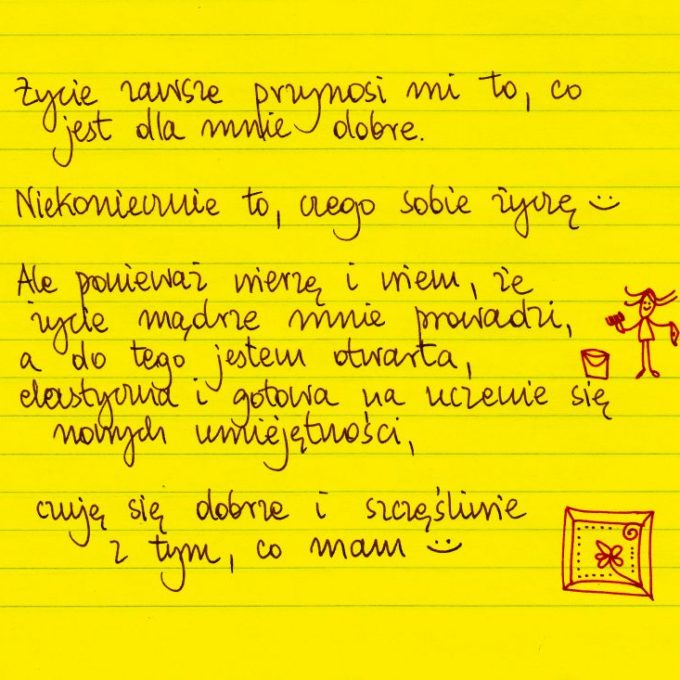 Życie zawsze przynosi mi to, co
jest dla mnie dobre.
Niekoniecznie to, czego sobie życzę :)
Ale ponieważ wierzę i wiem, że
życie mądrze mnie prowadzi,
a do tego jestem otwarta,
elastyczna i gotowa na uczenie się
nowych umiejętności,
czuję się dobrze i szczęśliwie
z tym, co mam :)